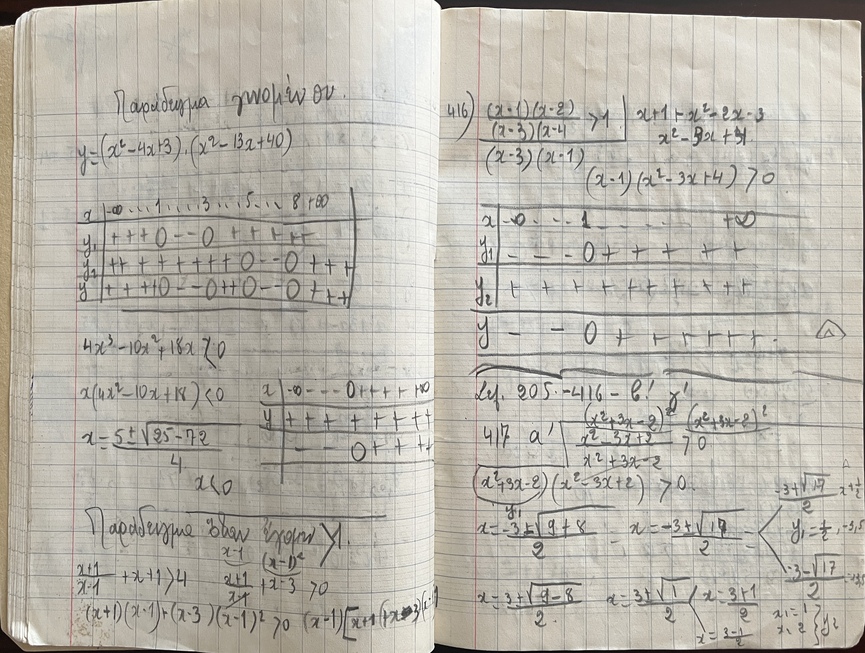 Παράδειγμα γινομένου.
y=(x²-4x+3).(x²-13x+40)
x | -∞ ... 1 ... 3 ... 5 ... 8 +∞
y₁ | +++0--0 + + + ++
y₂ | ++ + + + + + 0 -- 0 + + +
y | + + +0 - - 0 ++ 0 -- 0 + ++
4x³-10x²+18x < 0
x(4x²-10x+18) < 0
x | -∞ - - - 0 ++ + + +∞
y | + + + + + + + +
- - 0 + + + +
x = 5±√25-72
4
x<0
Παράδειγμα όταν έχομεν >1.
x+1
x-1
+x+1>4
x-1
x+1
x-1
(x-1)²
+x-3 >0
(x+1)(x-1)+(x-3)(x-1)²>0 (x-1)[x+1+(x-3)(x-1)
416) (x-1)(x-2)
(x-3)(x-4
>1
x+1+x²-2x-3
x²-3x+4
(x-3)(x-1)
(x-1)(x²-3x+4)>0
x | -∞ - - - 1 - - - +∞
y₁ | - - - 0 + + + + +
y₂ | + + + + + + + + +
y | - - 0 + + + + + +.
205.-416-β! γ'
417 α'
(x²+3x-2)² (x²+3x-2)²
x²-3x+2
x²+3x-2
>0
(x²+3x-2)(x²-3x+2)>0.
y₁
x = -3±√9+8
2
x = -3±√17
2
=
-3+√17
2
y₁=½, -3,5
-3-√17
2
x = 3±√9-8
2.
x = 3±√1
2
x = 3+1
2
x = 3-1
2
x₁=1
x₂ 2 } y₂